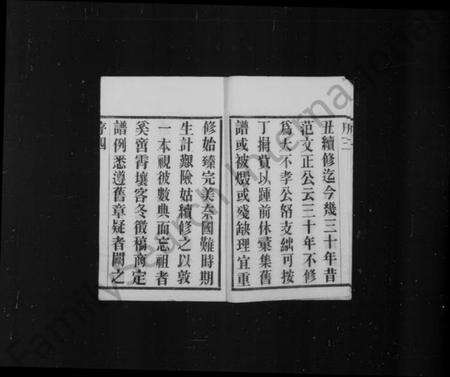 丑續修迄今幾三十年昔
范文正公云三十年不修
為大不孝公帑支絀可按
丁捐貲以踵前休蒐集舊
譜或被燬或殘缺理宜重
修始臻完美奈國難時期
生計艱險姑續修之以敦
一本視彼數典而忘祖者
奚啻霄壤客冬徵稿商定
譜例悉遵舊章疑者闕之
序四